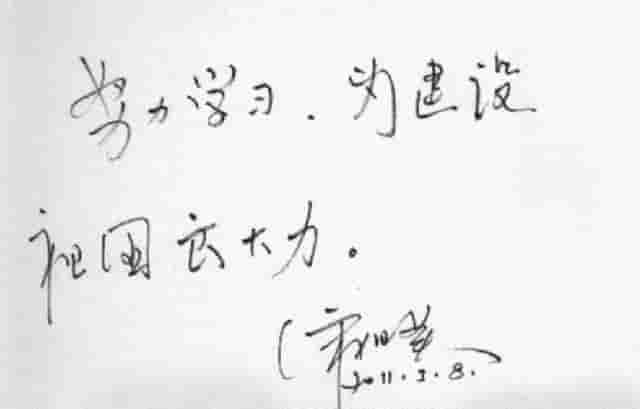 努力学习. 为建设
祖国大力。
2011.3.8.